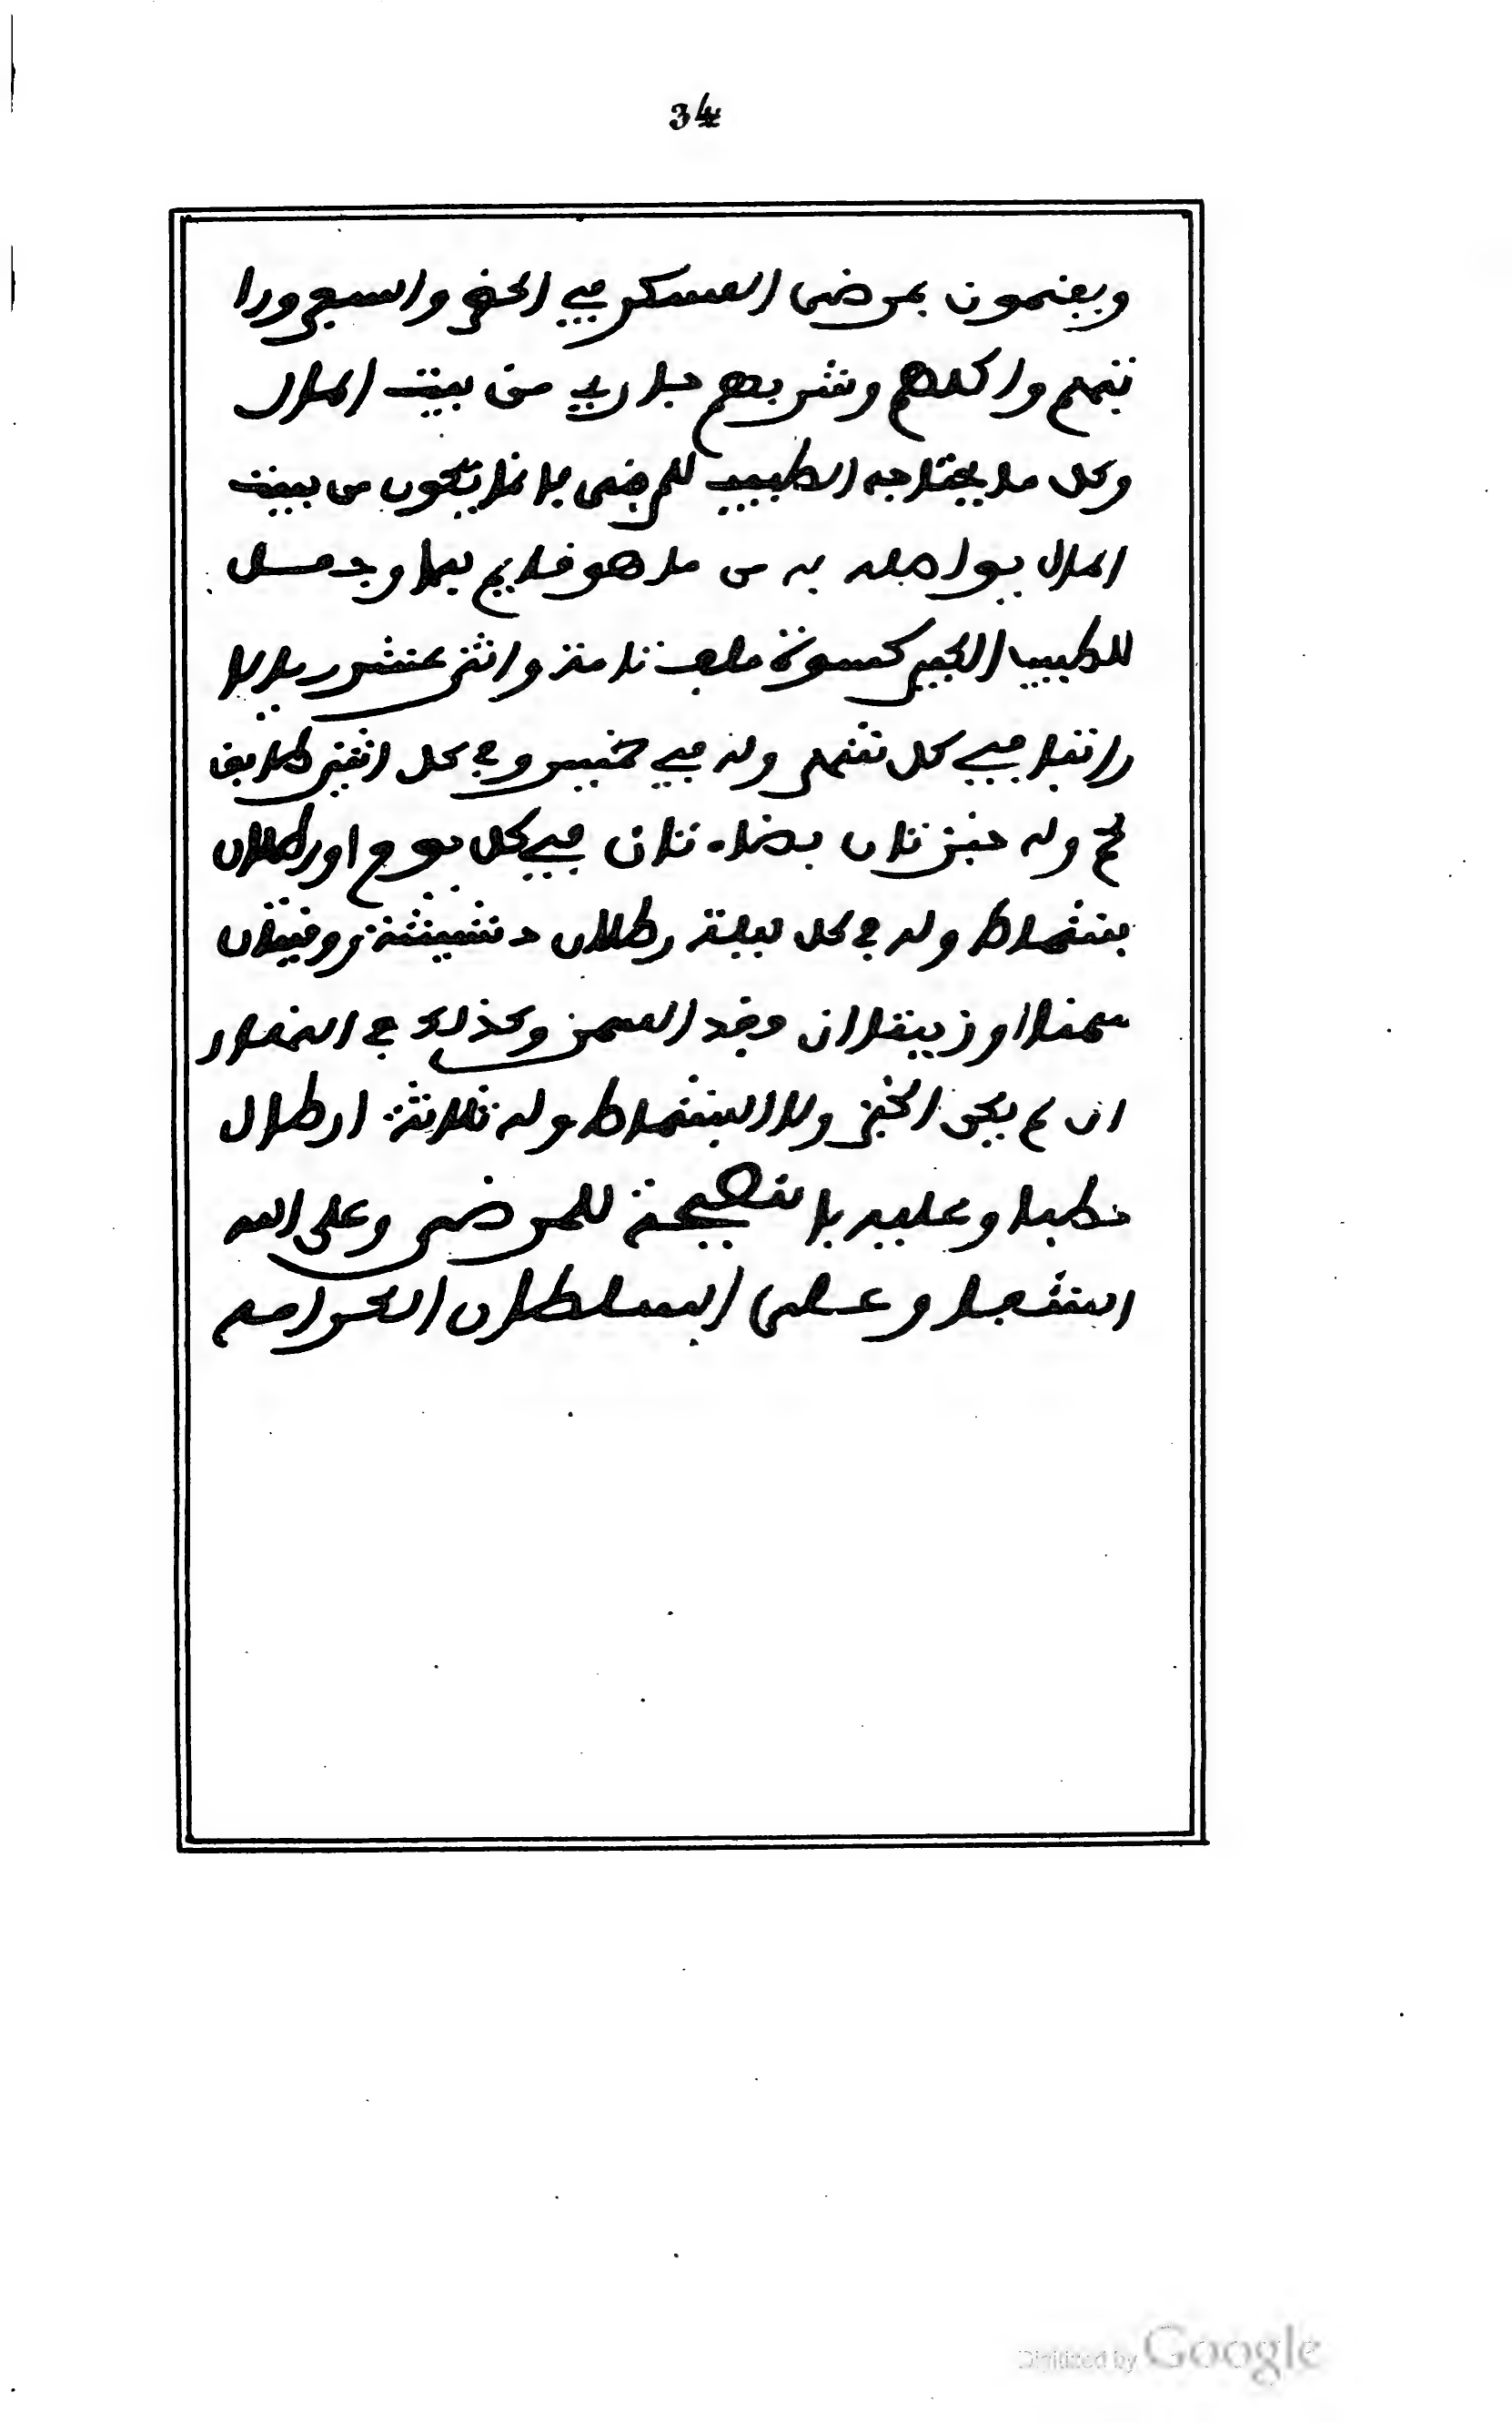 34
ويقيمون بمرضى العسكر في الحضر والسفر ورا
تبهم واكلهم وشربهم جاري من بيت المال
وكل ما يحتاجه الطبيب للمرضى فانما يكون من بيت
المال يواصله به من ما هو قايم
للطبيب الكبير كسوة ملف تامة واثنى عشر ريالا
راتبا في كل شهر وله في خميس وفي كل اثنين طابق
لحم وله خبزتان بيضاوتان في كل يوم او رطلان
بشماط وله في كل ليلة رطلان دشيشة ووقيتان
سمنا او زيتا ان فقد السمن وكذلك في النهار
ان لم يكن الخبز ولا البشماط وله ثلاثة ارطال
حطبا وعليه بالنصيحة للمرضى وعلى الله
الشفا وعلى السلطان الكرامه
Digitized by Google